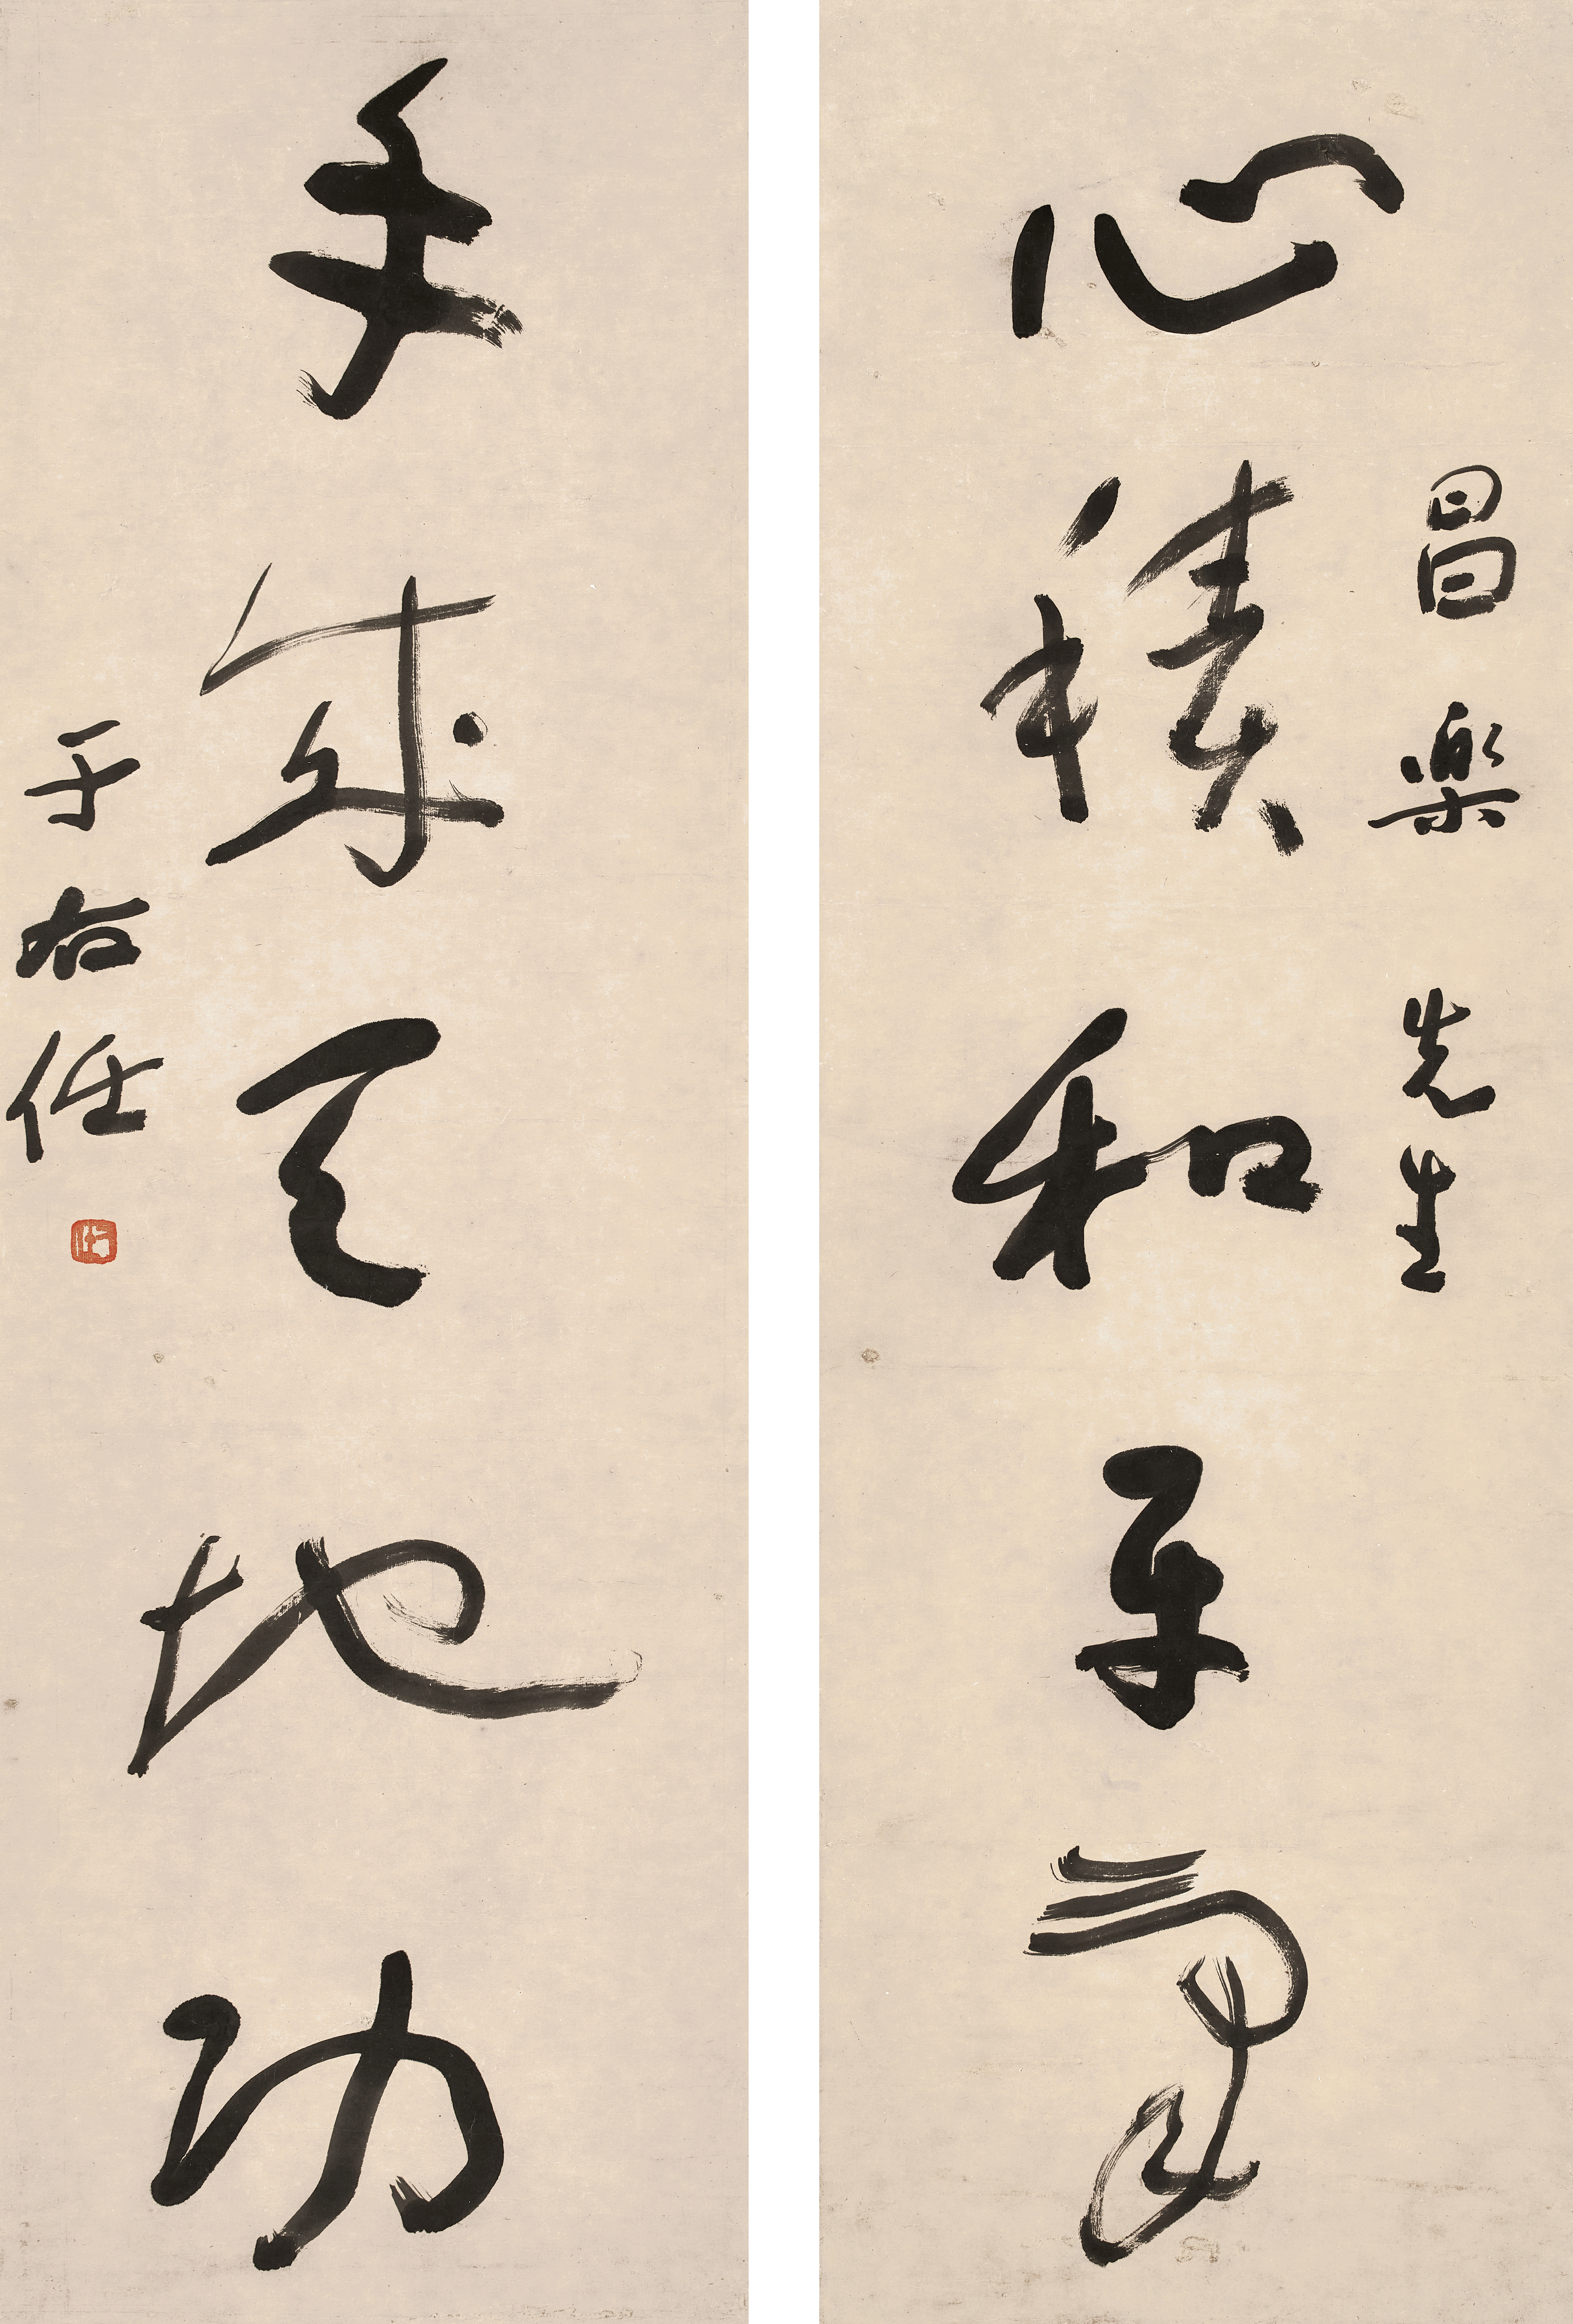 昌樂先生
心積和平氣
手成天地功
于右任
右任